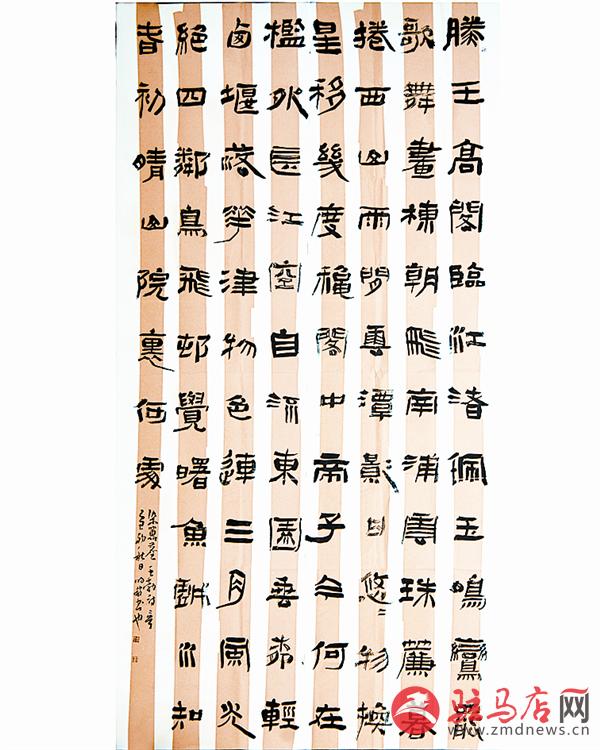 滕王高閣臨江渚佩玉鳴鸞罷
歌舞畫棟朝飛南浦雲珠簾暮
捲西山雨閒雲潭影日悠〻物換
星移幾度穐閣中帝子今何在
檻外長江空自流東園垂柳輕
西堰落花津物色連三月風光
絕四鄰鳥飛邨覺曙魚戲水知
春初晴山院裏何處
染囂塵 王勃詩
秋日
驻马店网
www.zmdnews.cn